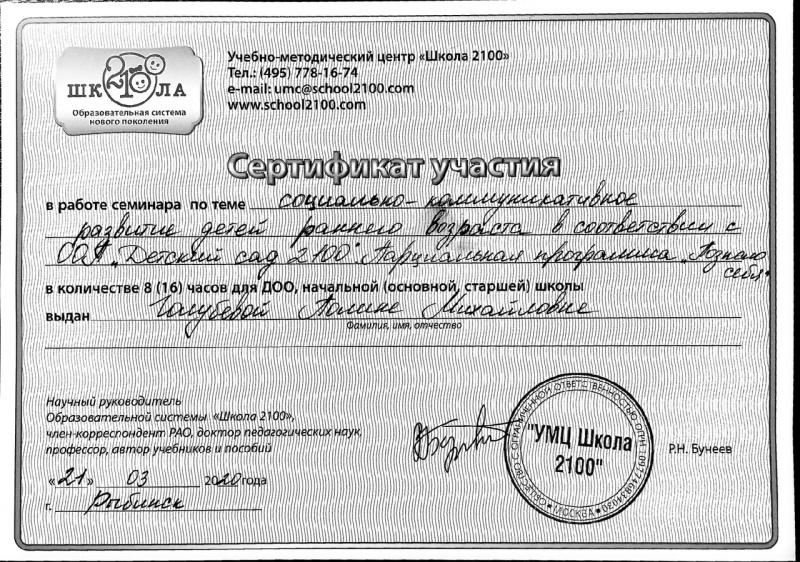 ШК2100ЛА
Образовательная система
нового поколения
Учебно-методический центр «Школа 2100»
Тел.: (495) 778-16-74
e-mail: umc@school2100.com
www.school2100.com
Сертификат участия
в работе семинара по теме социально-коммуникативное
развитие детей раннего возраста в соответствии с
ОАП „Детский сад 2100" Парциальная программа „Познаю
себя"
в количестве 8 (16) часов для ДОО, начальной (основной, старшей) школы
выдан Голубевой Полине Михайловне
Фамилия, имя, отчество
Научный руководитель
Образовательной системы «Школа 2100»,
член-корреспондент РАО, доктор педагогических наук,
профессор, автор учебников и пособий
«21» 03 2020 года
г. Рыбинск
ОБЩЕСТВО С ОГРАНИЧЕННОЙ ОТВЕТСТВЕННОСТЬЮ ОГРН
* МОСКВА *
"УМЦ Школа
2100"
Р.Н. Бунеев